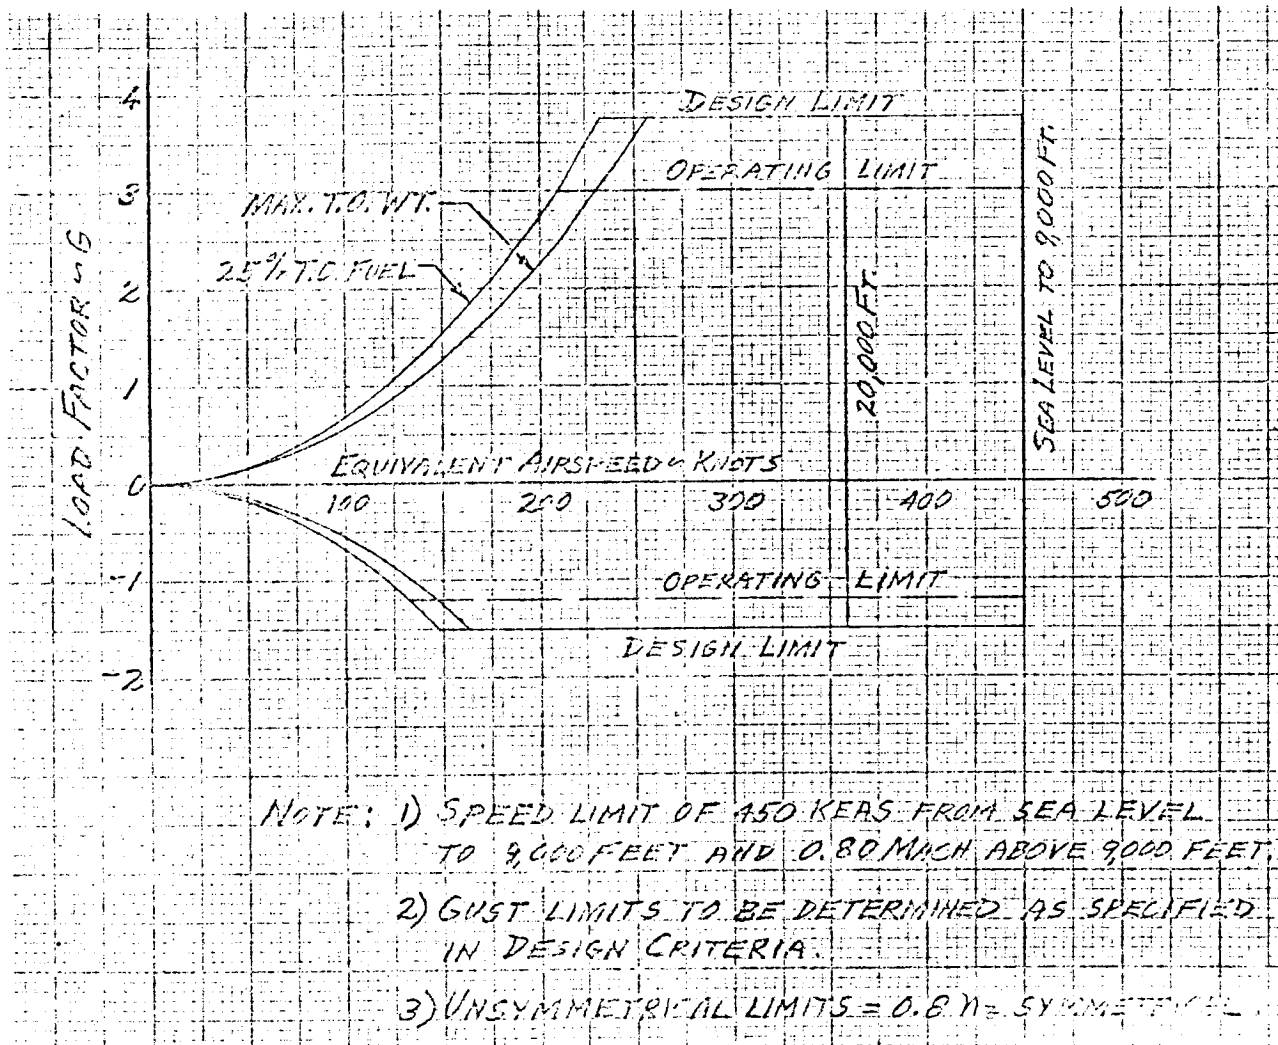 4
DESIGN LIMIT
OPERATING LIMIT
3
MAX. T.O. WT.
25% T.O. FUEL
2
LOAD FACTOR ~ G
20,000 FT.
SEA LEVEL TO 9,000 FT.
1
EQUIVALENT AIRSPEED ~ KNOTS
0
100 200 300 400 500
-1
OPERATING LIMIT
DESIGN LIMIT
-2
NOTE: 1) SPEED LIMIT OF 450 KEAS FROM SEA LEVEL
TO 9,000 FEET AND 0.80 MACH ABOVE 9000 FEET.
2) GUST LIMITS TO BE DETERMINED AS SPECIFIED
IN DESIGN CRITERIA.
3) UNSYMMETRICAL LIMITS = 0.8 SYMMETRICAL